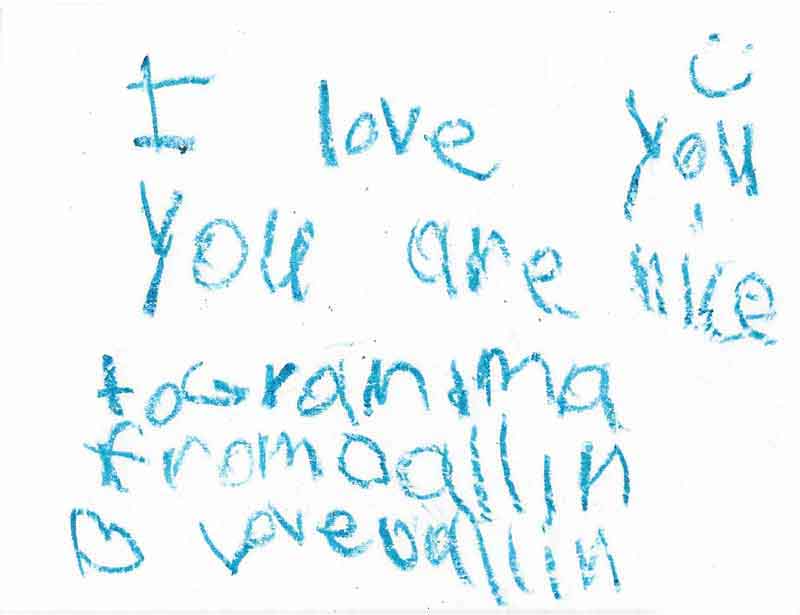 I love you
you are nice
to Grandma
from Dallin
Love Dallin